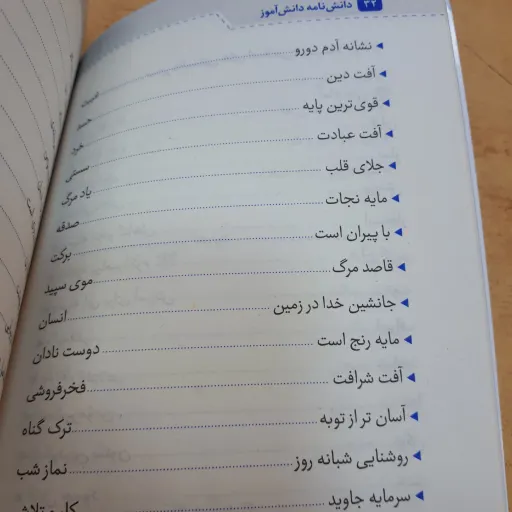 ۳۲ دانش‌نامه دانش‌آموز
نشانه آدم دورو ........ غیبت
آفت دین ........ حسد
قوی‌ترین پایه ........ خرد
آفت عبادت ........ سستی
جلای قلب ........ یاد مرگ
مایه نجات ........ صدقه
با پیران است ........ برکت
قاصد مرگ ........ موی سپید
جانشین خدا در زمین ........ انسان
مایه رنج است ........ دوست نادان
آفت شرافت ........ فخرفروشی
آسان تر از توبه ........ ترک گناه
روشنایی شبانه روز ........ نماز شب
سرمایه جاوید ........ کار و تلاش